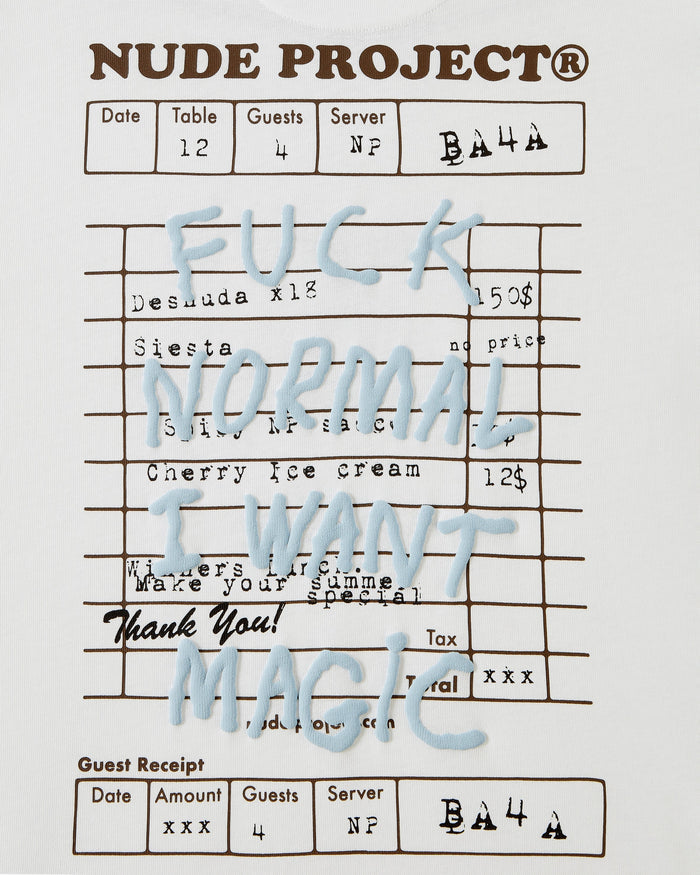 NUDE PROJECT®
Date Table Guests Server BA4A
12 4 NP
FUCK
Desnuda x18 150$
Siesta no price
NORMAL
Spicy NP sauce
Cherry Ice cream 12$
I WANT
Winners Lunch.
Make your summe
special
Thank You!
Tax
MAGiC
Total xxx
nudeproject.com
Guest Receipt
Date Amount Guests Server BA4A
xxx 4 NP